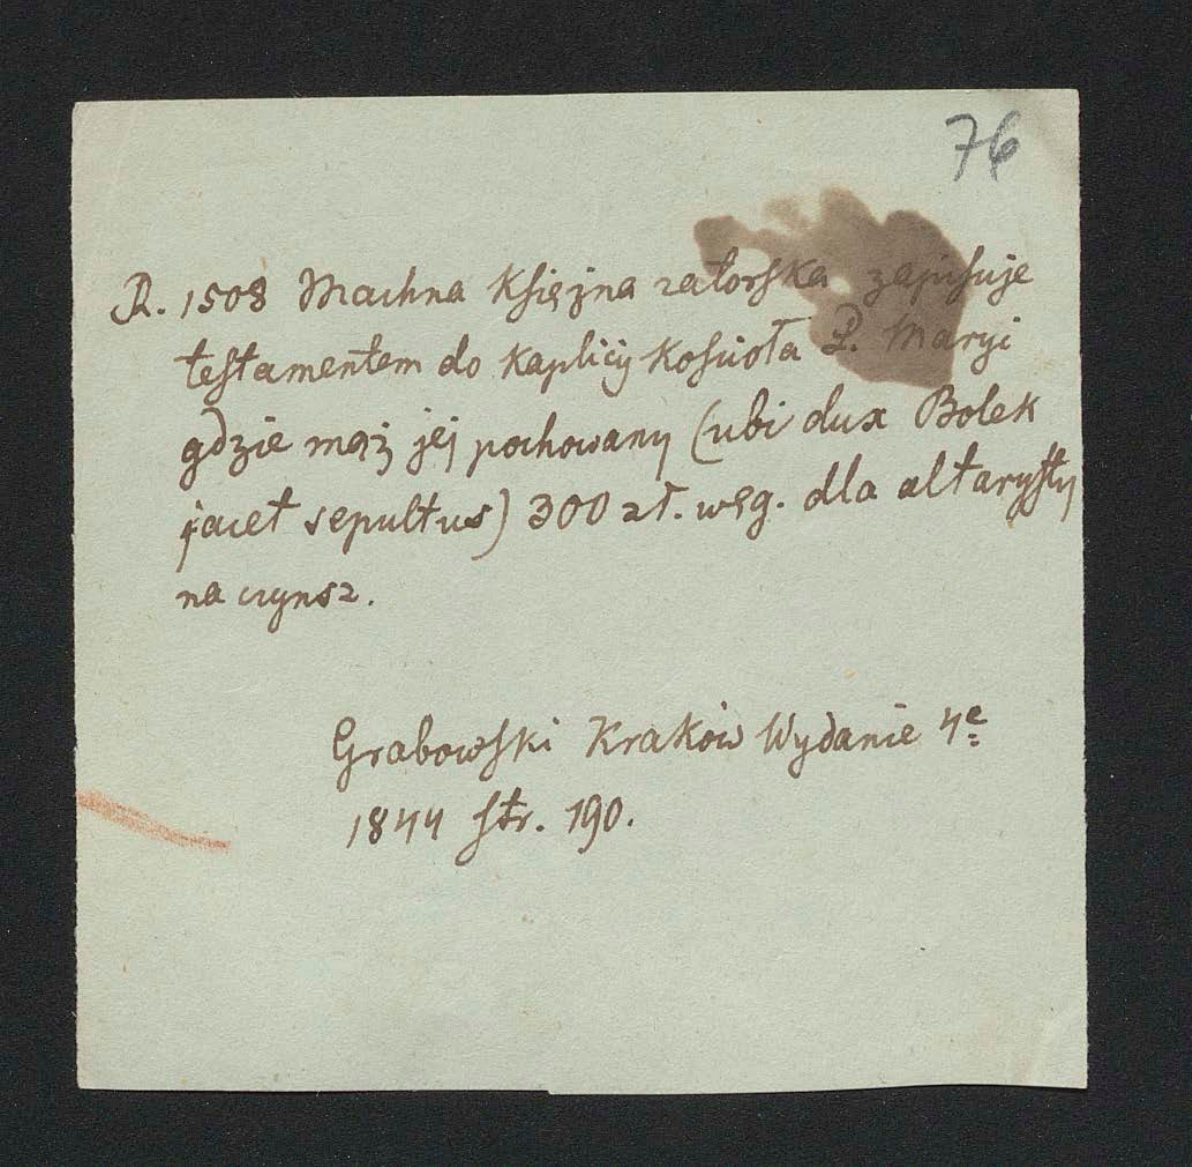 76
R. 1508 Machna Księżna zatorska zapisuje
testamentem do kaplicy kościoła P. Maryi
gdzie mąż jej pochowany (ubi dux Bolek
jacet sepultus) 300 zł. węg. dla altarysty
na czynsz.
Grabowski Kraków Wydanie 4e
1844 str. 190.